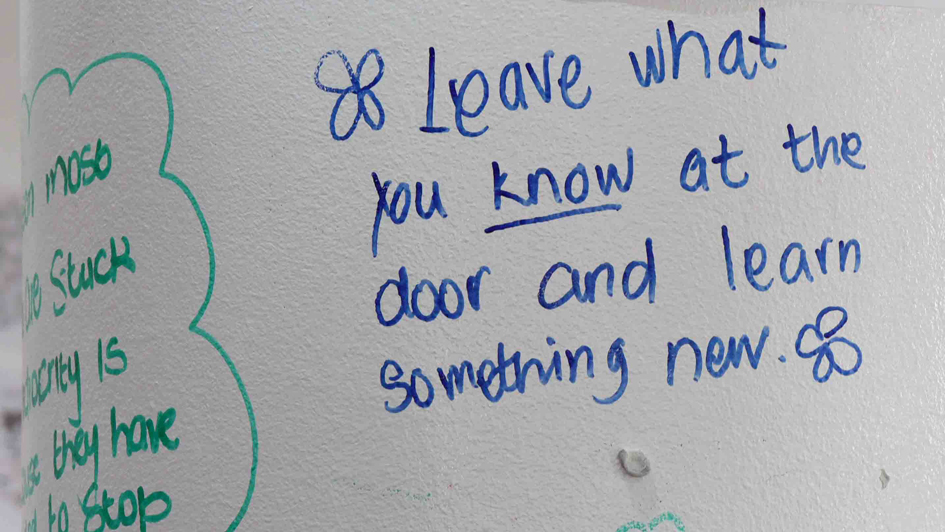 most
Stuck
is
they have
to Stop
Leave what
you know at the
door and learn
something new.